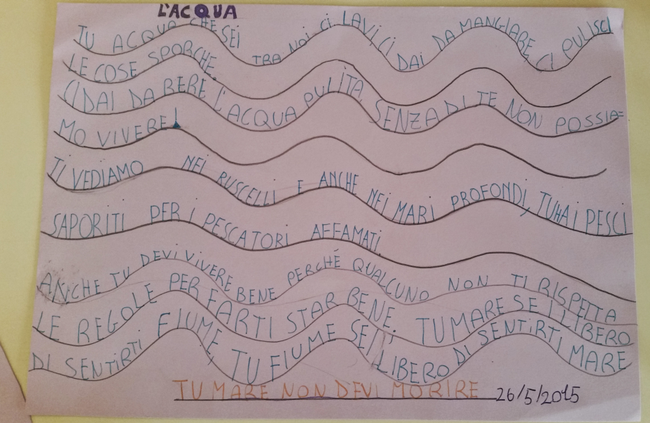 L'ACQUA
TU ACQUA CHE SEI TRA NOI CI LAVI, CI DAI DA MANGIARE, CI PULISCI
LE COSE SPORCHE.
CI DAI DA BERE L'ACQUA PULITA, SENZA DI TE NON POSSIA=
MO VIVERE!
TI VEDIAMO NEI RUSCELLI E ANCHE NEI MARI PROFONDI, TU HAI PESCI
SAPORITI PER I PESCATORI AFFAMATI.
ANCHE TU DEVI VIVERE BENE PERCHÉ QUALCUNO NON TI RISPETTA
LE REGOLE PER FARTI STAR BENE. TU MARE SEI LIBERO
DI SENTIRTI FIUME, TU FIUME SEI LIBERO DI SENTIRTI MARE
TU MARE NON DEVI MORIRE 26/5/2015